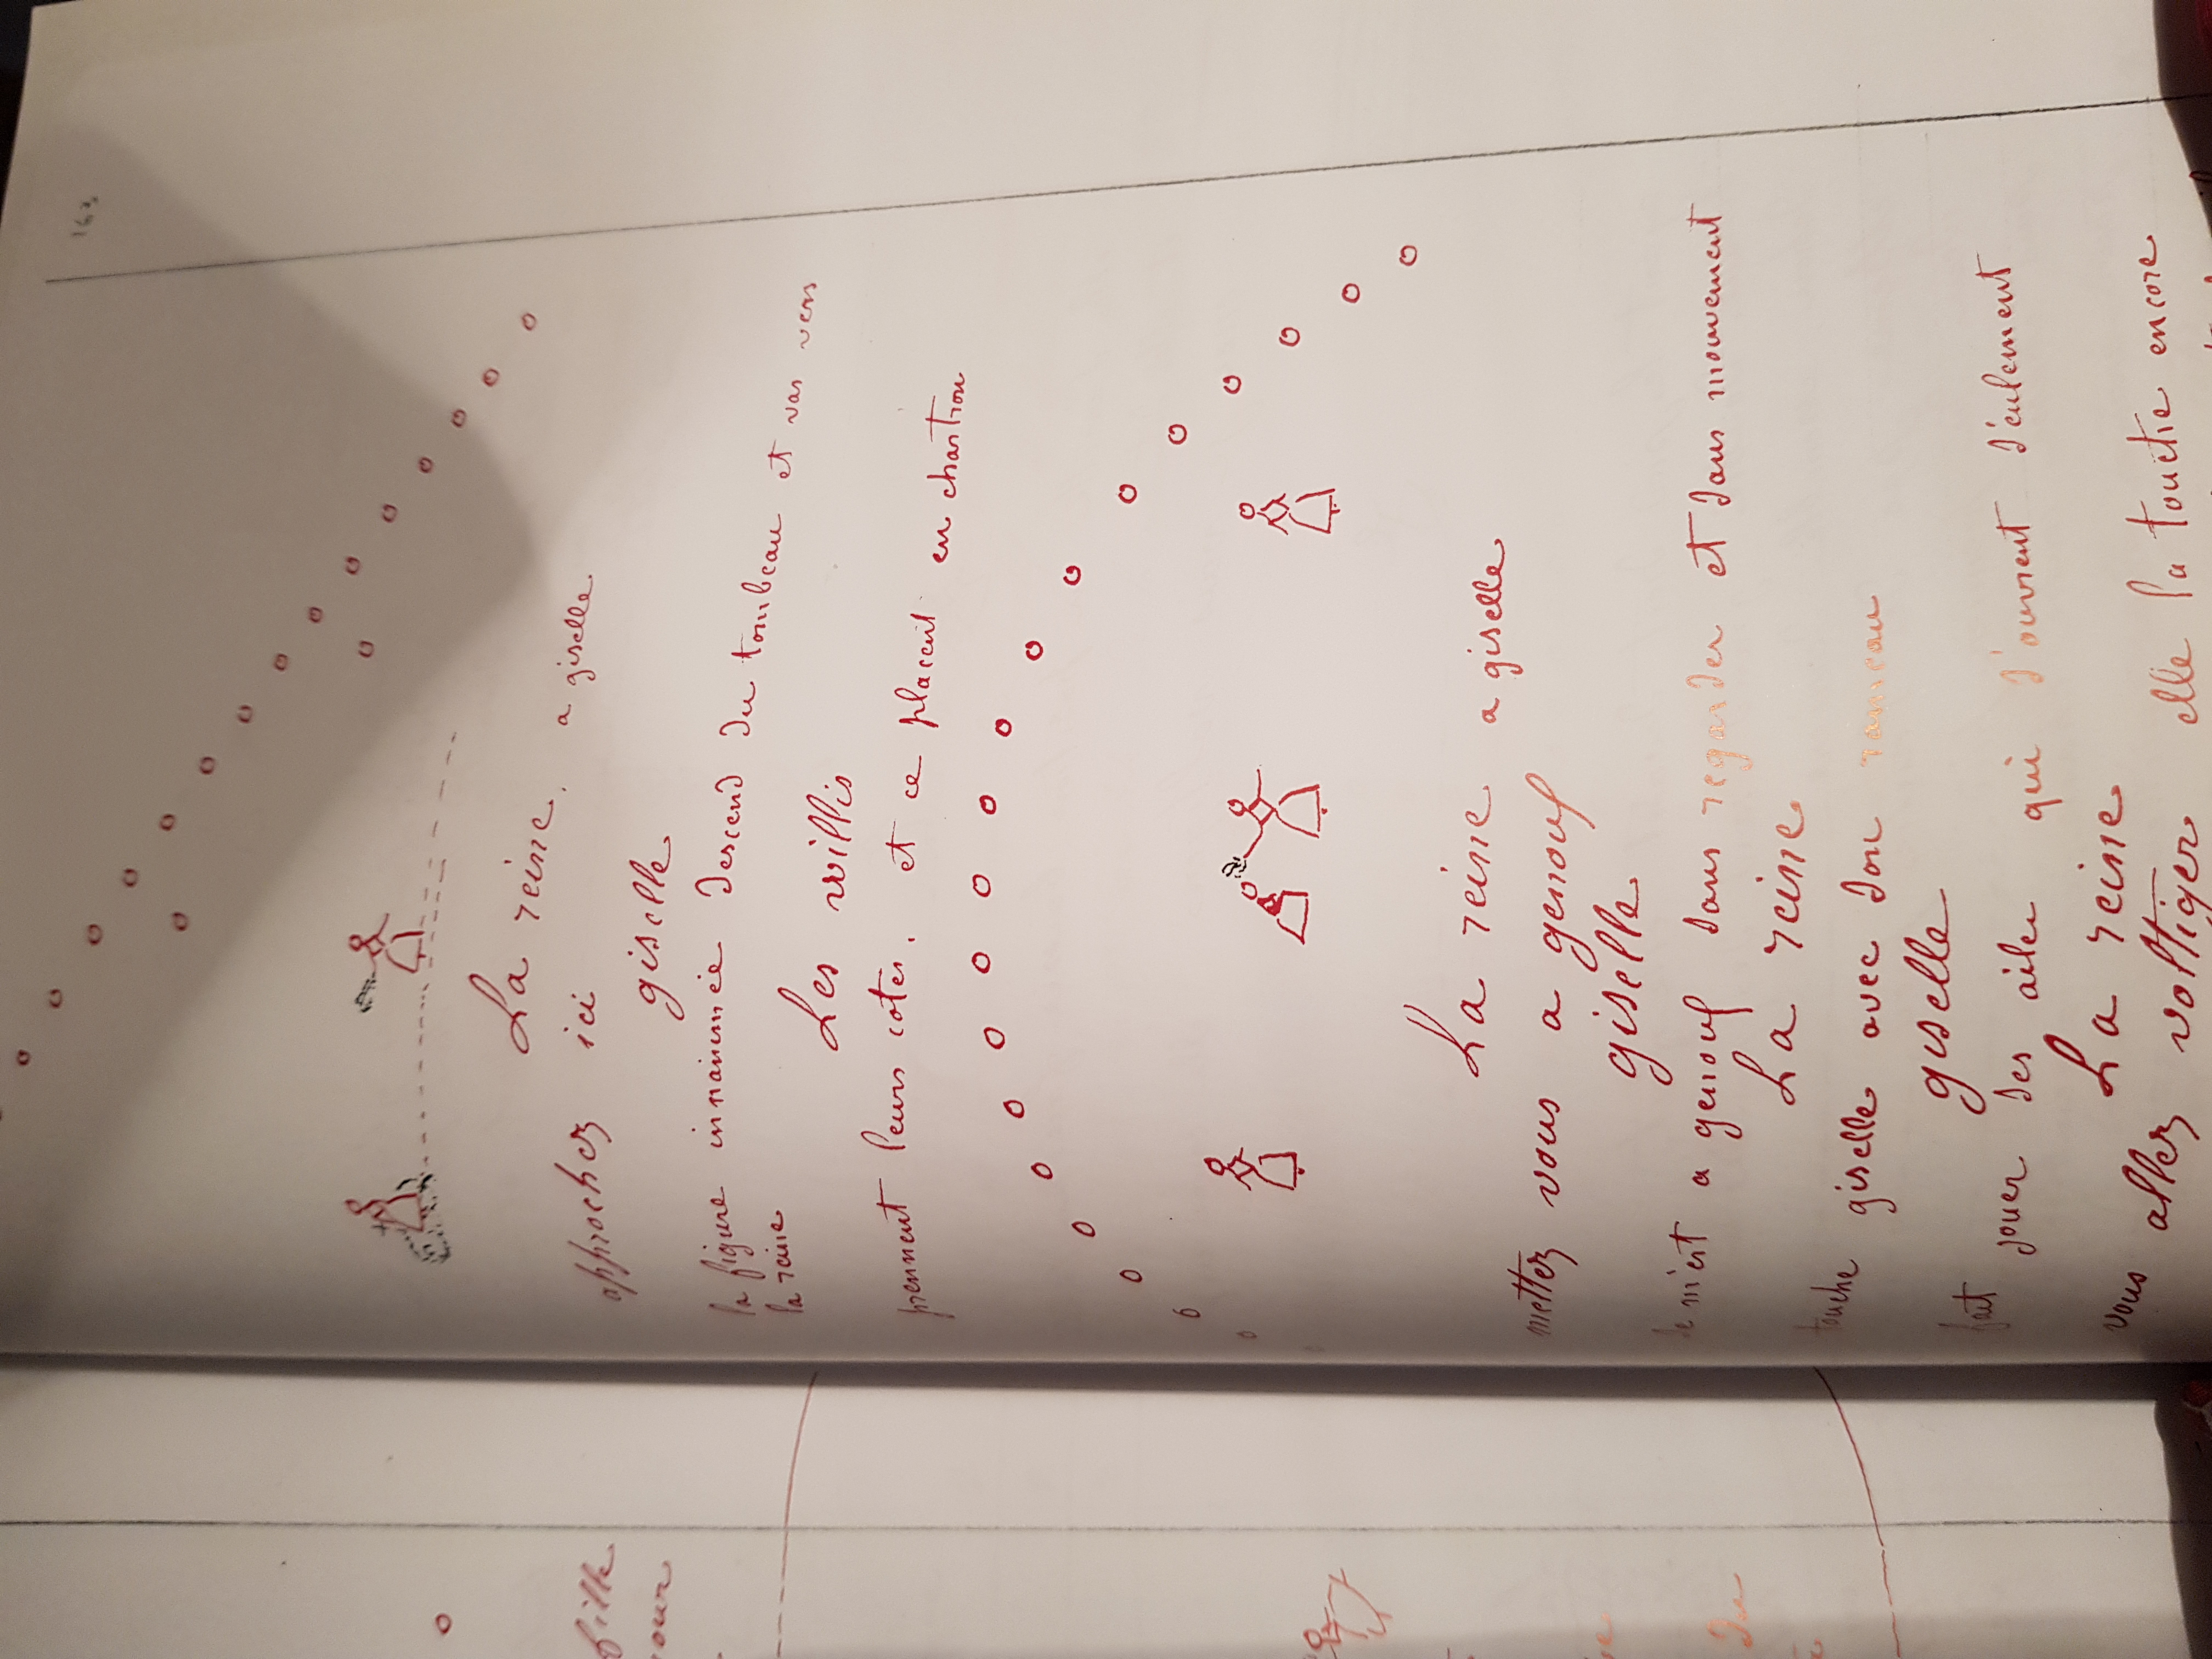 163
La reine, a giselle.
approchez ici
giselle
la figure innanimée descend du tombeau et vas vers
la reine
Les willis
prennent leurs cotés, et ce placent en chartron
La reine a giselle
mettez vous a genouf
giselle
ce met a genouf sans regarder et sans mouvement
La reine
touche giselle avec son rameau
giselle
fait jouer ses aile qui s'ouvrent seulement
La reine
vous allez voltiger elle la touche encore
fille
pour
du